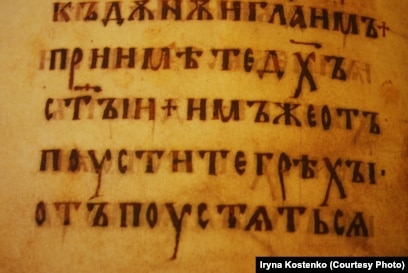 къдѫнѫиглаимъ+
приимѣтедх҃ъ
ст҃ъіи+имъжеотъ
поуститегрѣхъі·
отъпоустѧтьсѧ
Iryna Kostenko (Courtesy Photo)